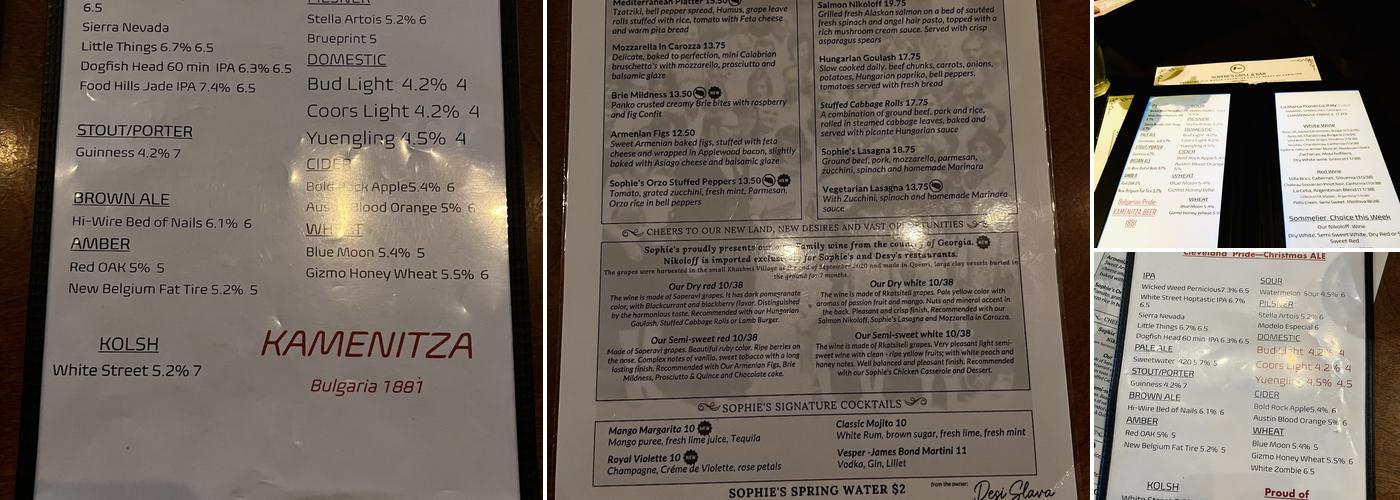 6.5
Sierra Nevada
Little Things 6.7% 6.5
Dogfish Head 60 min IPA 6.3% 6.5
Food Hills Jade IPA 7.4% 6.5
STOUT/PORTER
Guinness 4.2% 7
BROWN ALE
Hi-Wire Bed of Nails 6.1% 6
AMBER
Red OAK 5% 5
New Belgium Fat Tire 5.2% 5
KOLSH
White Street 5.2% 7
PILSNER
Stella Artois 5.2% 6
Brueprint 5
DOMESTIC
Bud Light 4.2% 4
Coors Light 4.2% 4
Yuengling 4.5% 4
CIDER
Bold Rock Apple5.4% 6
Austin Blood Orange 5% 6
WHEAT
Blue Moon 5.4% 5
Gizmo Honey Wheat 5.5% 6
KAMENITZA
Bulgaria 1881
Mediterranean Platter 15.50
Tzatziki, bell pepper spread, Humus, grape leave
rolls stuffed with rice, tomato with Feta cheese
and warm pita bread
Mozzarella in Carozza 13.75
Delicate, baked to perfection, mini Calabrian
bruschetta's with mozzarella, prosciutto and
balsamic glaze
Brie Mildness 13.50
Panko crusted creamy Brie bites with raspberry
and fig Confit
Armenian Figs 12.50
Sweet Armenian baked figs, stuffed with feta
cheese and wrapped in Applewood bacon, slightly
baked with Asiago cheese and balsamic glaze
Sophie's Orzo Stuffed Peppers 13.50
Tomato, grated zucchini, fresh mint, Parmesan,
Orzo rice in bell peppers
Salmon Nikoloff 19.75
Grilled fresh Alaskan salmon on a bed of sautéed
fresh spinach and angel hair pasta, topped with a
rich mushroom cream sauce. Served with crisp
asparagus spears
Hungarian Goulash 17.75
Slow cooked daily, beef chunks, carrots, onions,
potatoes, Hungarian paprika, bell peppers,
tomatoes served with fresh bread
Stuffed Cabbage Rolls 17.75
A combination of ground beef, pork and rice,
rolled in steamed cabbage leaves, baked and
served with picante Hungarian sauce
Sophie's Lasagna 18.75
Ground beef, pork, mozzarella, parmesan,
zucchini, spinach and homemade Marinara
Vegetarian Lasagna 13.75
With Zucchini, spinach and homemade Marinara
sauce
CHEERS TO OUR NEW LAND, NEW DESIRES AND VAST OPPORTUNITIES
Sophie's proudly presents our own Family wine from the country of Georgia.
Nikoloff is imported exclusively for Sophie's and Desy's restaurants.
The grapes were harvested in the small Khashmi Village at the end of September 2020 and made in Qvevri, large clay vessels buried in
the ground for 7 months.
Our Dry red 10/38
The wine is made of Saperavi grapes. It has dark pomegranate
color, with Blackcurrant and blackberry flavor. Distinguished
by the harmonious taste. Recommended with our Hungarian
Goulash, Stuffed Cabbage Rolls or Lamb Burger.
Our Semi-sweet red 10/38
Made of Saperavi grapes. Beautiful ruby color. Ripe berries on
the nose. Complex notes of vanilla, sweet tobacco with a long
lasting finish. Recommended with Our Armenian Figs, Brie
Mildness, Prosciutto & Quince and Chocolate cake.
Our Dry white 10/38
The wine is made of Rkatsiteli grapes. Pale yellow color with
aromas of passion fruit and mango. Nuts and mineral accent in
the back. Pleasant and crisp finish. Recommended with our
Salmon Nikoloff, Sophie's Lasagna and Mozzarella in Carozza.
Our Semi-sweet white 10/38
The wine is made of Rkatsiteli grapes. Very pleasant light semi-
sweet wine with clean - ripe yellow fruits; with white peach and
honey notes. Well balanced and pleasant finish. Recommended
with our Sophie's Chicken Casserole and Dessert.
SOPHIE'S SIGNATURE COCKTAILS
Mango Margarita 10
Mango puree, fresh lime juice, Tequila
Royal Violette 10
Champagne, Créme de Violette, rose petals
Classic Mojito 10
White Rum, brown sugar, fresh lime, fresh mint
Vesper -James Bond Martini 11
Vodka, Gin, Lillet
SOPHIE'S SPRING WATER $2
from the owner:
Desi Slava
SOPHIE'S GRILL & BAR
SOUR
PILSNER
DOMESTIC
CIDER
WHEAT
Bulgarian Pride-
KAMENITZA BEER
1881
White Wine
Red Wine
Sommelier Choice this Week
Our Nikoloff Wine
Dry White, Semi Sweet White, Dry Red or S
Sweet Red
Cleveland Pride—Christmas ALE
IPA
Wicked Weed Pernicious7.3% 6.5
White Street Hoptastic IPA 6.7%
6.5
Sierra Nevada
Little Things 6.7% 6.5
Dogfish Head 60 min IPA 6.3% 6.5
PALE ALE
Sweetwater 420 5.7% 5
STOUT/PORTER
Guinness 4.2% 7
BROWN ALE
Hi-Wire Bed of Nails 6.1% 6
AMBER
Red OAK 5% 5
New Belgium Fat Tire 5.2% 5
KOLSH
SOUR
Watermelon Sour 4.5% 6
PILSNER
Stella Artois 5.2% 6
Modelo Especial 6
DOMESTIC
Bud Light 4.2% 4
Coors Light 4.2% 4
Yuengling 4.5% 4.5
CIDER
Bold Rock Apple5.4% 6
Austin Blood Orange 5% 6
WHEAT
Blue Moon 5.4% 5
Gizmo Honey Wheat 5.5% 6
White Zombie 6.5
Proud of